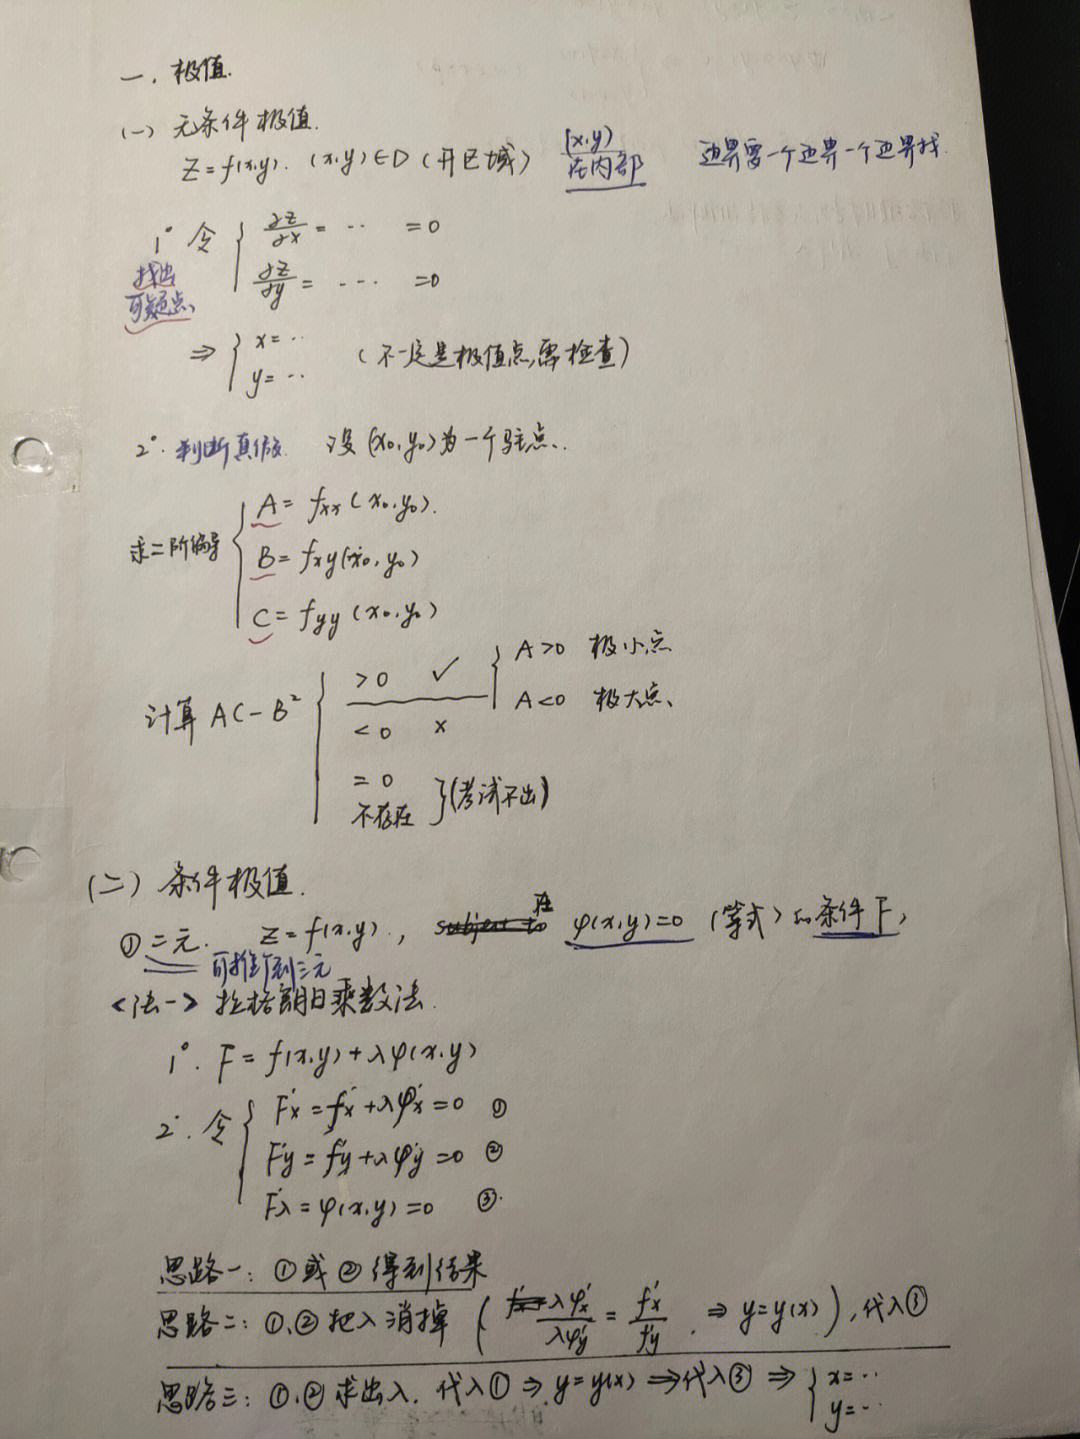 一. 极值.
(一) 无条件极值.
Z=f(x,y). (x,y)∈D(开区域) (x,y)在内部 边界需一个边界一个边界找.
1° 令 { ∂z/∂x = ·· =0
找出可疑点、 ∂z/∂y = ··· =0
⇒ { x=·· y=·· (不一定是极值点,需检查)
2°. 判断真假. 设(x₀,y₀)为一个驻点..
求二阶偏导 { A= fxx(x₀,y₀).
B= fxy(x₀,y₀)
C= fyy(x₀,y₀)
计算 AC-B² { >0 ✓ { A>0 极小点
A<0 极大点、
<0 ×
=0
不存在 }(考试不出)
(二) 条件极值.
①二元. Z=f(x,y), 在 φ(x,y)=0 (等式)的条件下,
可推广到三元
<法一> 拉格朗日乘数法.
1°. F= f(x,y)+λφ(x,y)
2°. 令 { F'x = f'x+λφ'x=0 ①
F'y = f'y+λφ'y=0 ②
F'λ = φ(x,y)=0 ③.
思路一: ①或②得到结果
思路二: ①、②把λ消掉 ( λφ'x/λφ'y = f'x/f'y . ⇒ y=y(x) ), 代入③
思路三: ①、②求出λ. 代入① ⇒ y=y(x) ⇒代入③ ⇒ { x=·· y=··